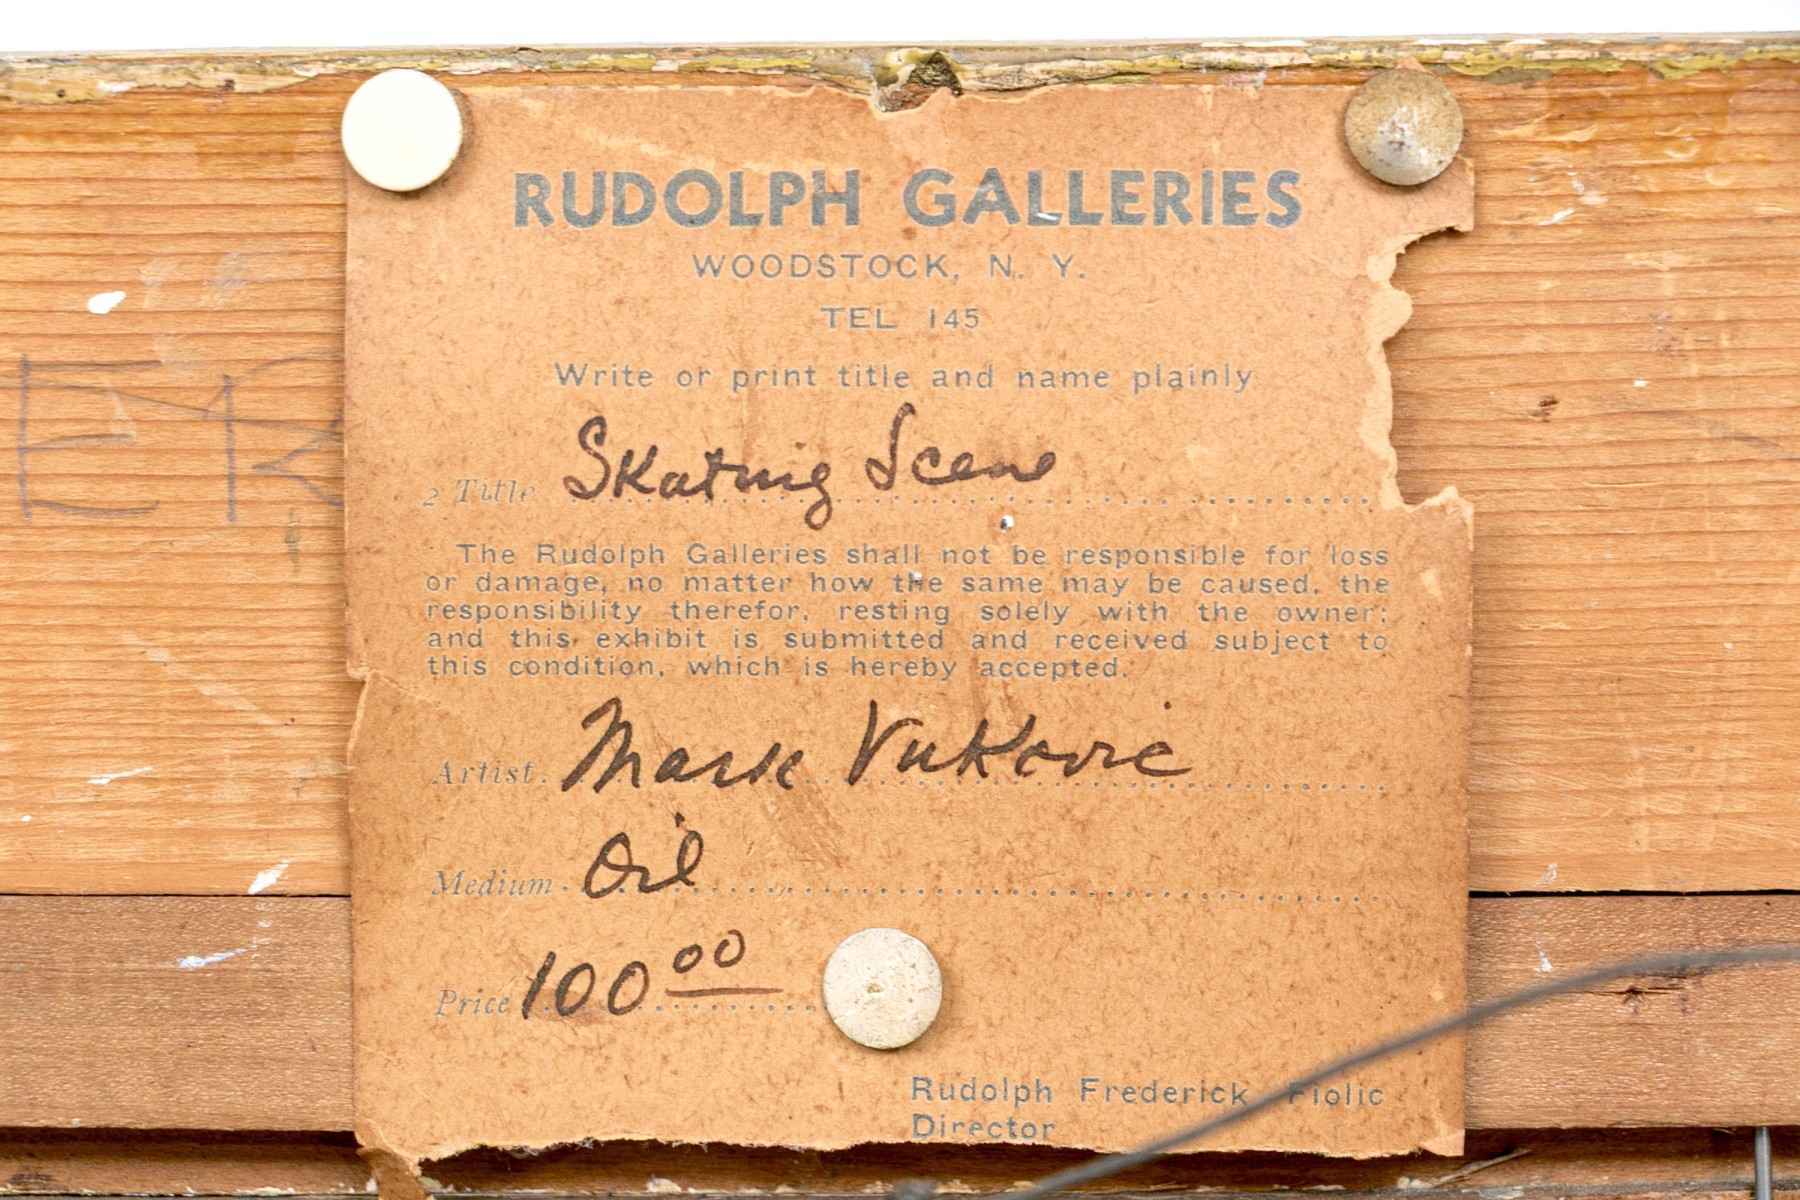 RUDOLPH GALLERIES
WOODSTOCK, N. Y.
TEL 145
Write or print title and name plainly
2 Title Skating Scene
The Rudolph Galleries shall not be responsible for loss
or damage, no matter how the same may be caused, the
responsibility therefor, resting solely with the owner;
and this exhibit is submitted and received subject to
this condition, which is hereby accepted.
Artist. Mark Vukovic
Medium Oil
Price 100 00
Rudolph Frederick Fiolic
Director